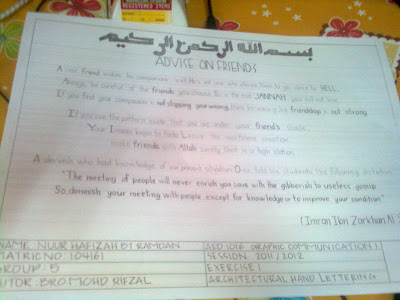 REGISTERED ITEMS
بسم الله الرحمن الرحيم
ADVISE ON FRIENDS
A real friend makes his companions
HELL.
Always be careful of the friends you choose
JANNAH you will not love.
If you find your companion is not stopping your wrong, then be his friendship is not strong
If you see the pattern made that you are under your friend's shade,
Your Imaan began to fade. Leave the worthless creation,
make friends with Allah surely that is a high station.
A dervish who had knowledge of our present situation Once told his students the following
"The meeting of people will never enrich you save with the gibberish to useless gossip
So, diminish your meeting with people except for knowledge or to improve your condition"
(Imran Ibn Zarkhan Al
NAME: NUUR HAFIZAH BT RAMDAN
MATRIC NO: 104161
GROUP: 5
TUTOR: BRO.MOHD RIFZAL
AED 1016 GRAPHIC COMMUNICATION 1
SESSION 2011/2012
EXERCISE 1
ARCHITECTURAL HAND LETTERING